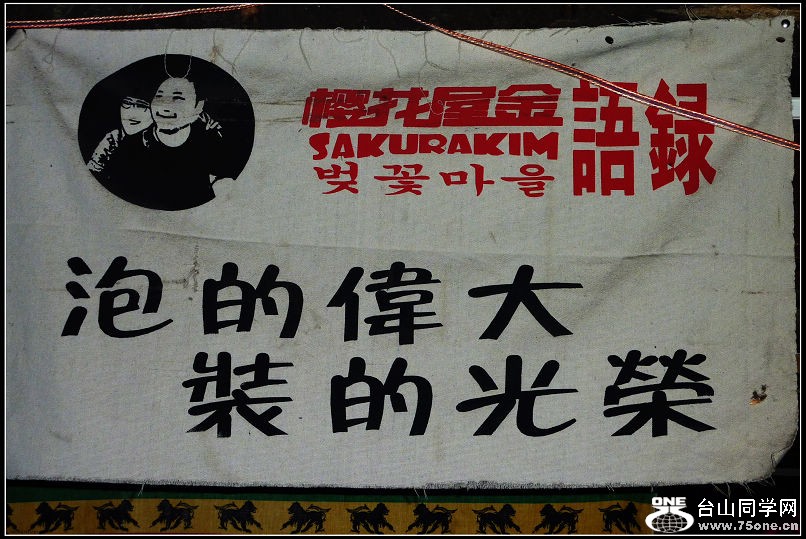 櫻花屋金
SAKURAKIM
벚꽃마을
語録
泡的偉大
裝的光榮
ONE
台山同学网
www.75one.cn